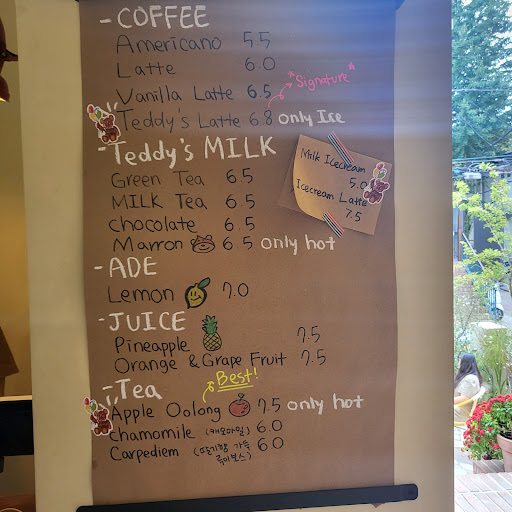 - COFFEE
Americano 5.5
Latte 6.0
"Signature"
Vanilla Latte 6.5
Teddy's Latte 6.8 only Ice
- Teddy's MILK
Green Tea 6.5
MILK Tea 6.5
chocolate 6.5
Marron 6.5 only hot
Milk Icecream
5.0
Icecream Latte
7.5
- ADE
Lemon 7.0
- JUICE
Pineapple 7.5
Orange & Grape Fruit 7.5
- Tea
Best!
Apple Oolong 7.5 only hot
chamomile (캐모마일) 6.0
Carpediem (딸기향 가득 루이보스) 6.0